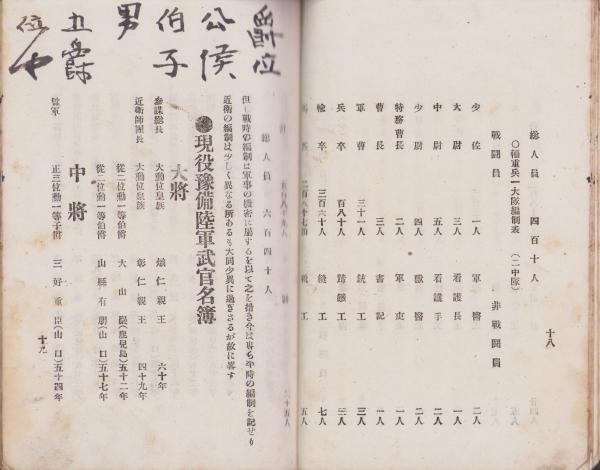 〇輜重兵一大隊編制表(二中隊)
総人員 四百十人
戰闘員 非戰闘員
少佐 一人 軍醫 二人
大尉 三人 看護長 一人
中尉 五人 看護手 二人
少尉 四人 獸醫 二人
特務曹長 二人 軍吏 一人
曹長 三人 書記 三人
軍曹 三十一人 銃工 一人
兵卒 百八十人 蹄鐵工 三人
輸卒 三百六十人 縫工 七人
工 五人
十八
爵位
公侯
伯子
男
五爵
位や
總人員 六百四十人
但し戰時の編制は軍事の機密に屬するを以て之を措き今は專ら平時の編制を記せり
近衛の編制は少しく異なる所あるも大同少異に過ぎさるが故に畧す
●現役豫備陸軍武官名簿
大將
參謀總長 大勳位皇族 熾仁親王 六十年
近衛師團長 大勳位皇族 彰仁親王 四十九年
從二位勳一等伯爵 大山巖(鹿兒島)五十二年
從二位勳一等伯爵 山縣有朋(山口)五十七年
中將
監軍 正三位勳一等子爵 三好重臣(山口)五十四年
十九